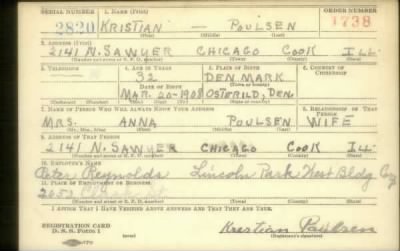 SERIAL NUMBER
1. NAME (Print)
ORDER NUMBER
2820 KRISTIAN — POULSEN 1738
(First) (Middle) (Last)
2. ADDRESS (Print)
2141 N. SAWYER CHICAGO COOK ILL.
(Number and street or R. F. D. number) (Town) (County) (State)
3. TELEPHONE
4. AGE IN YEARS
5. PLACE OF BIRTH
6. COUNTRY OF CITIZENSHIP
32 DENMARK
DATE OF BIRTH
(Town or county)
MAR. 20-1908 OSTERILD, DEN.
(Mo.) (Day) (Yr.) (State or country)
7. NAME OF PERSON WHO WILL ALWAYS KNOW YOUR ADDRESS
8. RELATIONSHIP OF THAT PERSON
MRS. ANNA POULSEN WIFE
(Mr., Mrs., Miss) (First) (Middle) (Last)
9. ADDRESS OF THAT PERSON
2141 N. SAWYER CHICAGO COOK ILL.
(Number and street or R. F. D. number) (Town) (County) (State)
10. EMPLOYER'S NAME
Peter Reynolds Lincoln Park West Bldg
11. PLACE OF EMPLOYMENT OR BUSINESS
2052
(Number and street or R. F. D. number) (Town) (County) (State)
I AFFIRM THAT I HAVE VERIFIED ABOVE ANSWERS AND THAT THEY ARE TRUE.
REGISTRATION CARD
D. S. S. Form 1
Kristian Poulsen
(Registrant's signature)